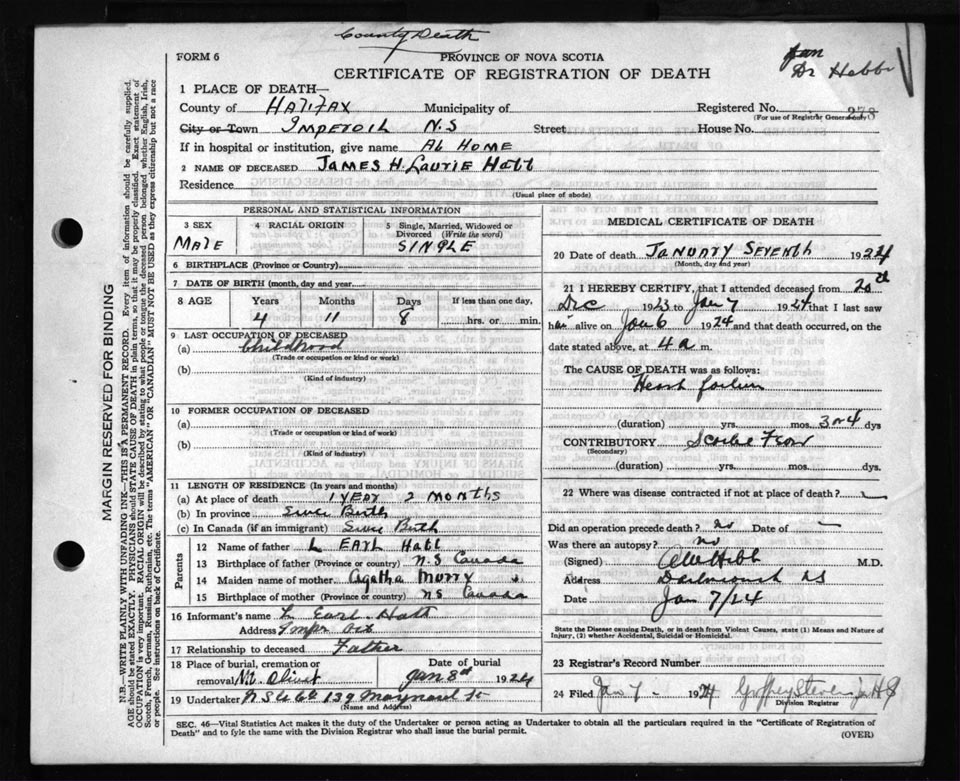 County Death
FORM 6
PROVINCE OF NOVA SCOTIA
CERTIFICATE OF REGISTRATION OF DEATH
Jan
Dr Hebb
1 PLACE OF DEATH—
County of HALIFAX Municipality of Registered No. 278
(For use of Registrar General only)
City or Town IMPEROIL N.S Street House No.
If in hospital or institution, give name At HOME
2 NAME OF DECEASED JAMES H. LAURIE Hatt
Residence
(Usual place of abode)
PERSONAL AND STATISTICAL INFORMATION
3 SEX
MALE
4 RACIAL ORIGIN
5 Single, Married, Widowed or Divorced (Write the word)
SINGLE
6 BIRTHPLACE (Province or Country)
7 DATE OF BIRTH (month, day and year)
8 AGE Years Months Days If less than one day,
4 11 8 hrs. or min.
9 LAST OCCUPATION OF DECEASED
(a) Childhood
(Trade or occupation or kind or work)
(b)
(Kind of industry)
10 FORMER OCCUPATION OF DECEASED
(a)
(Trade or occupation or kind or work)
(b)
(Kind of industry)
11 LENGTH OF RESIDENCE (In years and months)
(a) At place of death 1 YEAR 2 MONTHS
(b) In province Since Birth
(c) In Canada (if an immigrant) Since Birth
Parents
12 Name of father L EARL Hatt
13 Birthplace of father (Province or country) N.S Canada
14 Maiden name of mother Agatha
15 Birthplace of mother (Province or country) NS Canada
16 Informant's name L Earl Hatt
Address
17 Relationship to deceased Father
18 Place of burial, cremation or removal Mt. Olivet
Date of burial
Jan 8th 1924
19 Undertaker 139 Maynard St
(Name and Address)
MEDICAL CERTIFICATE OF DEATH
20 Date of death JANUARY SEVENth 1924
(Month, day and year)
21 I HEREBY CERTIFY, that I attended deceased from 20th
Dec 1923 to Jan 7 1924 that I last saw
him alive on Jan 6 1924 and that death occurred, on the
date stated above, at 4 a m.
The CAUSE OF DEATH was as follows:
Heart failure
(duration) yrs. mos. 3 or 4 dys
CONTRIBUTORY Scarlet Fever
(Secondary)
(duration) yrs. mos. dys.
22 Where was disease contracted if not at place of death?
Did an operation precede death? no Date of —
Was there an autopsy? no
(Signed) Hebb M.D.
Address Dartmouth NS
Date Jan 7/24
State the Disease causing Death, or in death from Violent Causes, state (1) Means and Nature of
Injury, (2) whether Accidental, Suicidal or Homicidal.
23 Registrar's Record Number
24 Filed Jan 7 - 1924
Division Registrar
SEC. 46—Vital Statistics Act makes it the duty of the Undertaker or person acting as Undertaker to obtain all the particulars required in the "Certificate of Registration of
Death" and to fyle the same with the Division Registrar who shall issue the burial permit.
(OVER)
MARGIN RESERVED FOR BINDING
N.B.—WRITE PLAINLY WITH UNFADING INK—THIS IS A PERMANENT RECORD. Every item of information should be carefully supplied.
AGE should be stated EXACTLY. PHYSICIANS should STATE CAUSE OF DEATH in plain terms, so that it may be properly classified. Exact statement of
OCCUPATION is very important. RACIAL ORIGIN will be described by stating to what people or tongue the deceased person belonged, whether English, Irish,
Scotch, French, German, Russian, Ruthenian, etc. The terms "AMERICAN" OR "CANADIAN" MUST NOT BE USED as they express citizenship but not a race
or people. See instructions on back of Certificate.